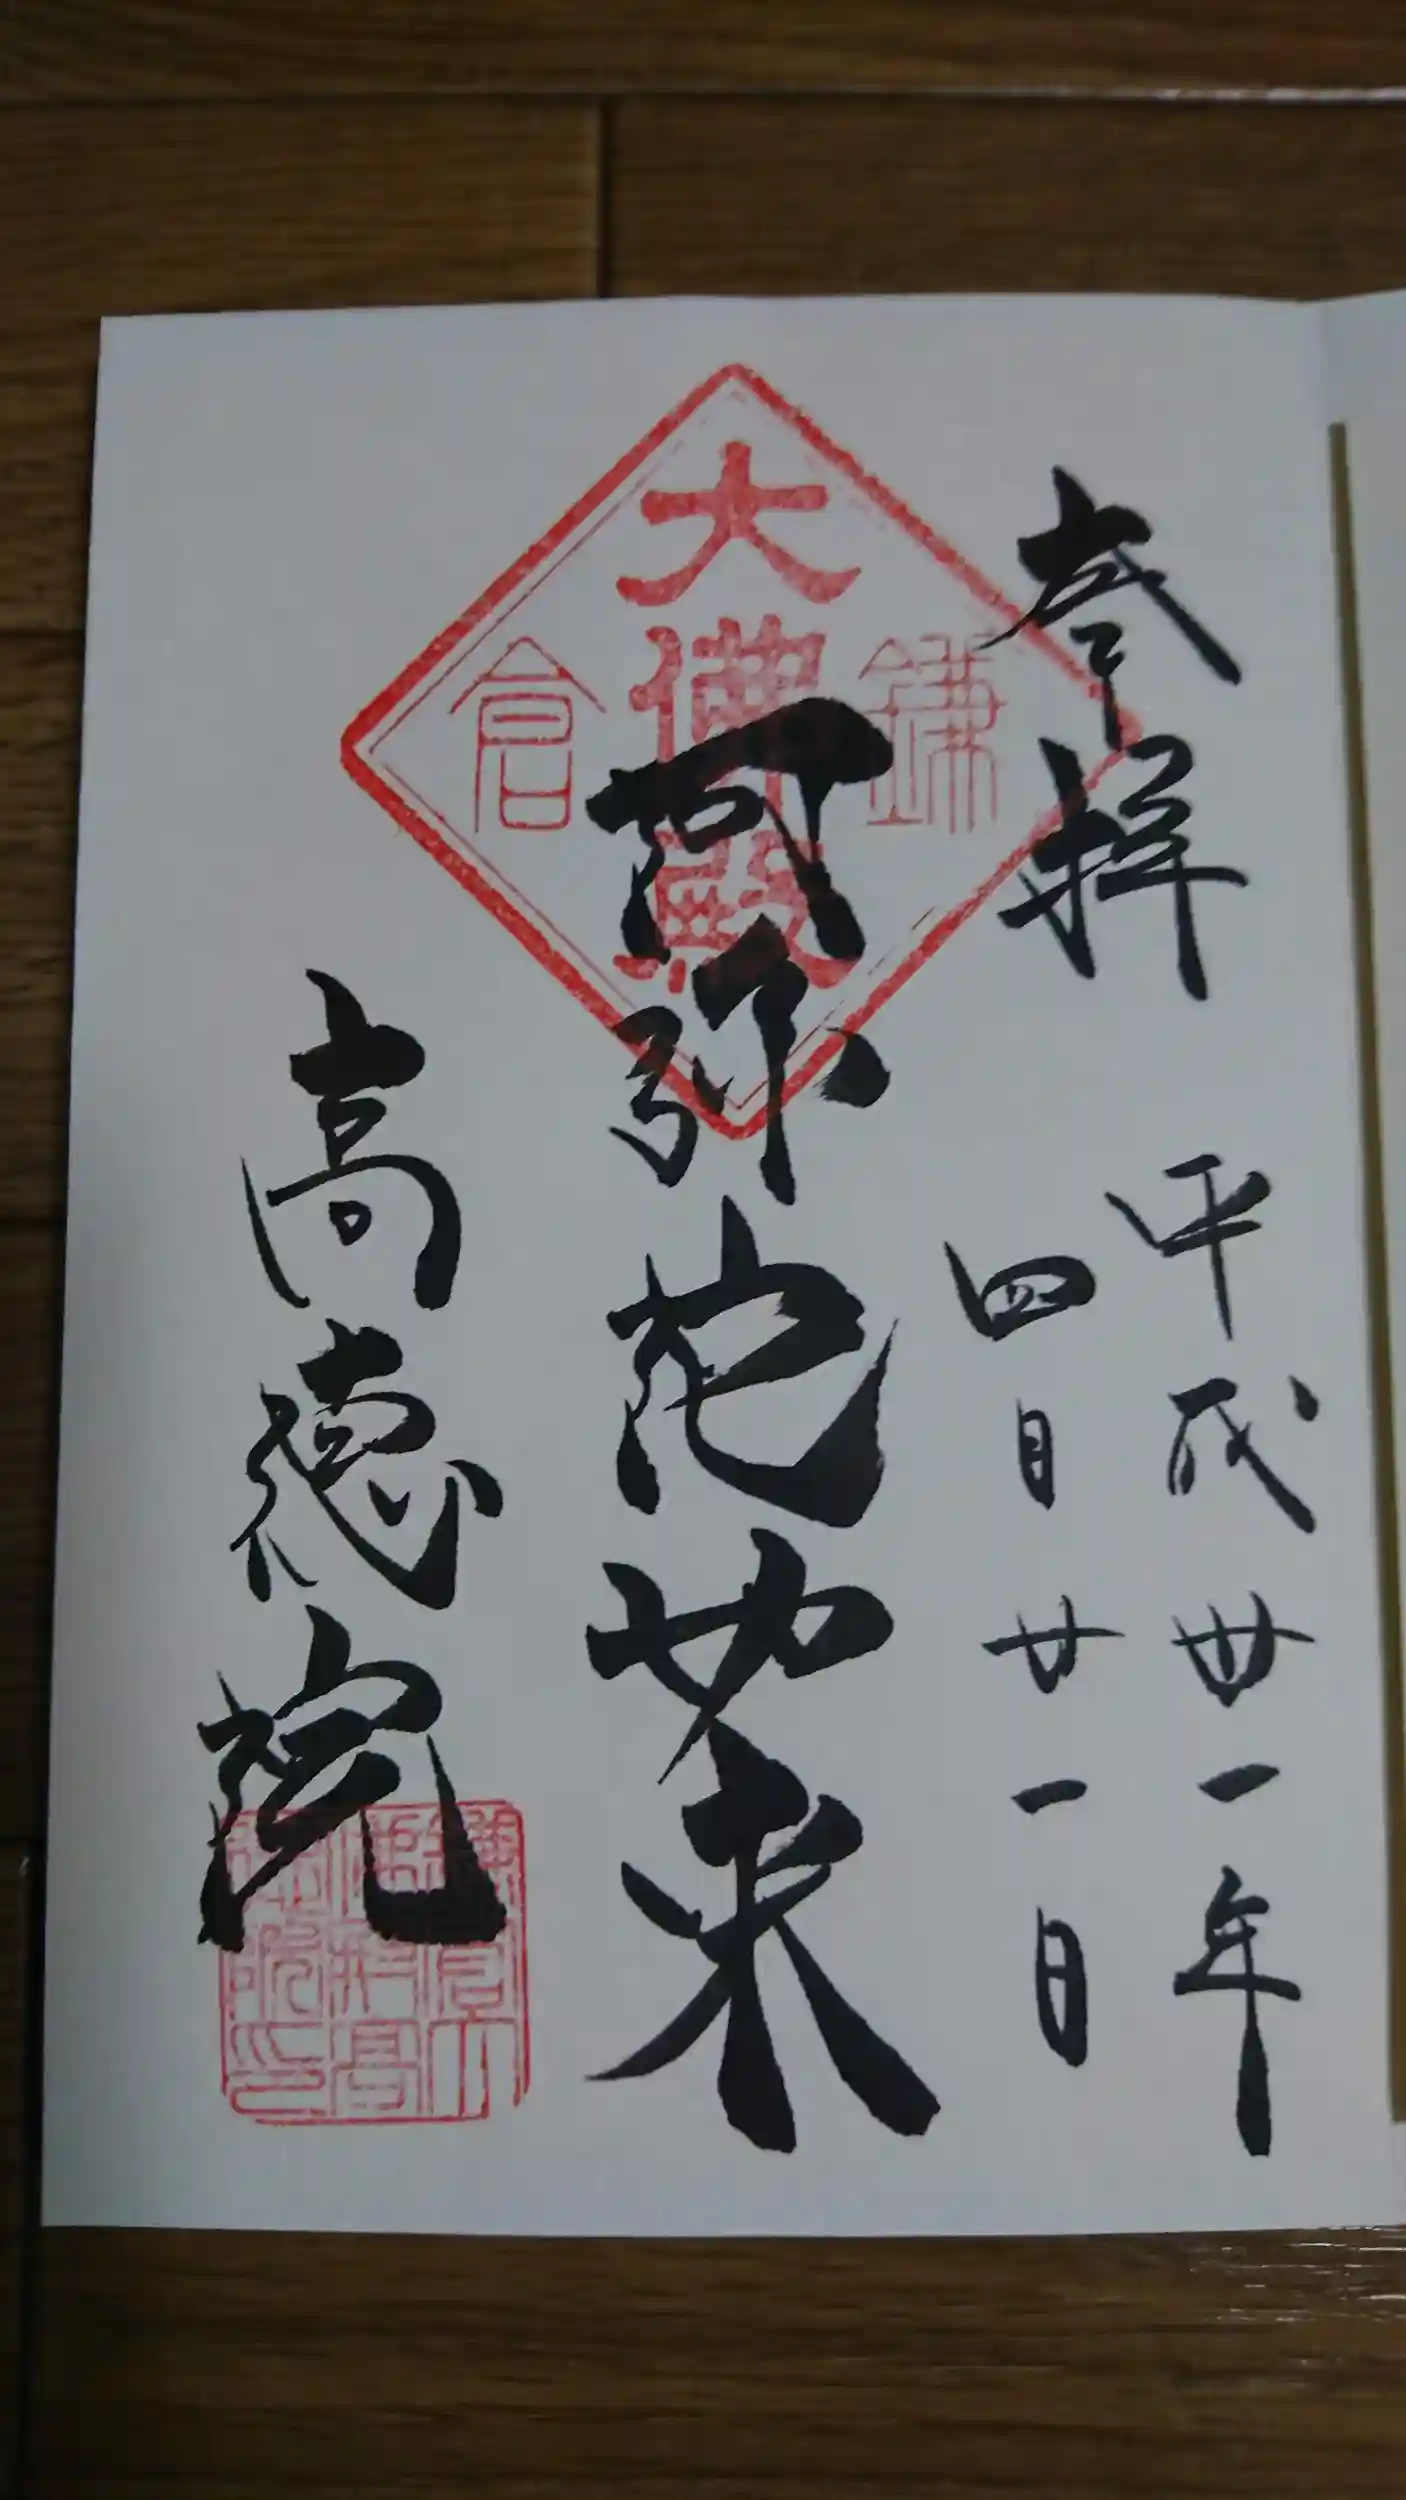 参拝
平成丗一年
四月廿一日
鎌倉
大佛殿
阿弥陀如来
高徳院